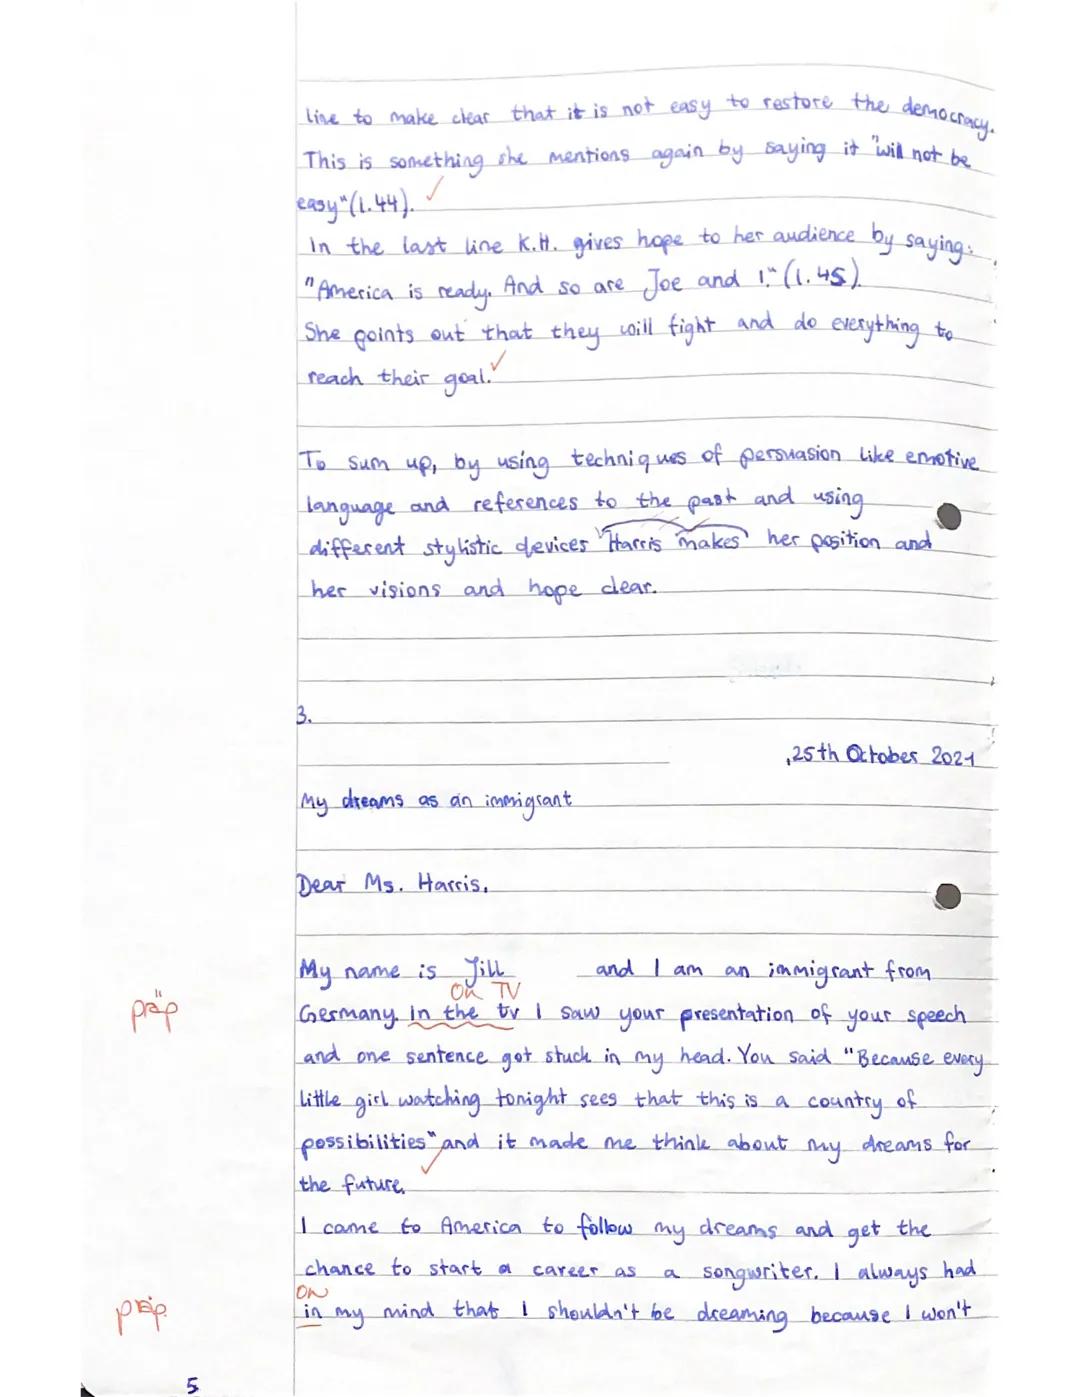 line to make clear that it is not easy to restore the democracy.
This is something she mentions again by saying it "will not be
easy"(l.44). ✓
In the last line K.H. gives hope to her audience by saying:
"America is ready. And so are Joe and I." (l.45).
She points out that they will fight and do everything to
reach their goal. ✓
To sum up, by using techniques of persuasion like emotive
language and references to the past and using
different stylistic devices Harris makes her position and
her visions and hope clear.
3.
,25th October 2021
My dreams as an immigrant
Dear Ms. Harris,
My name is Jill and I am an immigrant from
On TV
präp Germany. In the tv I saw your presentation of your speech
and one sentence got stuck in my head. You said "Because every
little girl watching tonight sees that this is a country of
possibilities" and it made me think about my dreams for
the future. ✓
I came to America to follow my dreams and get the
chance to start a career as a songwriter. I always had
on
präp. in my mind that I shouldn't be dreaming because I won't
5